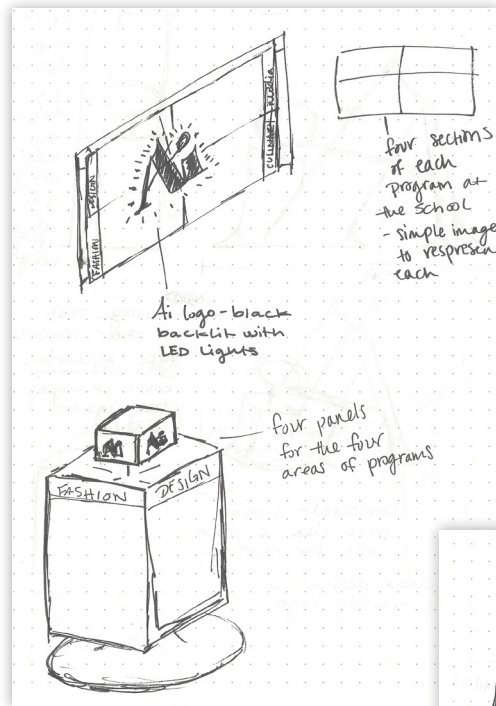 DESIGN
FASHION
CULINARY
Media
Ai
four sections
of each
program at
the school
- simple image
to respresen
each
Ai logo - black
backlit with
LED Lights
Ai
Ai
FASHION
DESIGN
four panels
for the four
areas of programs